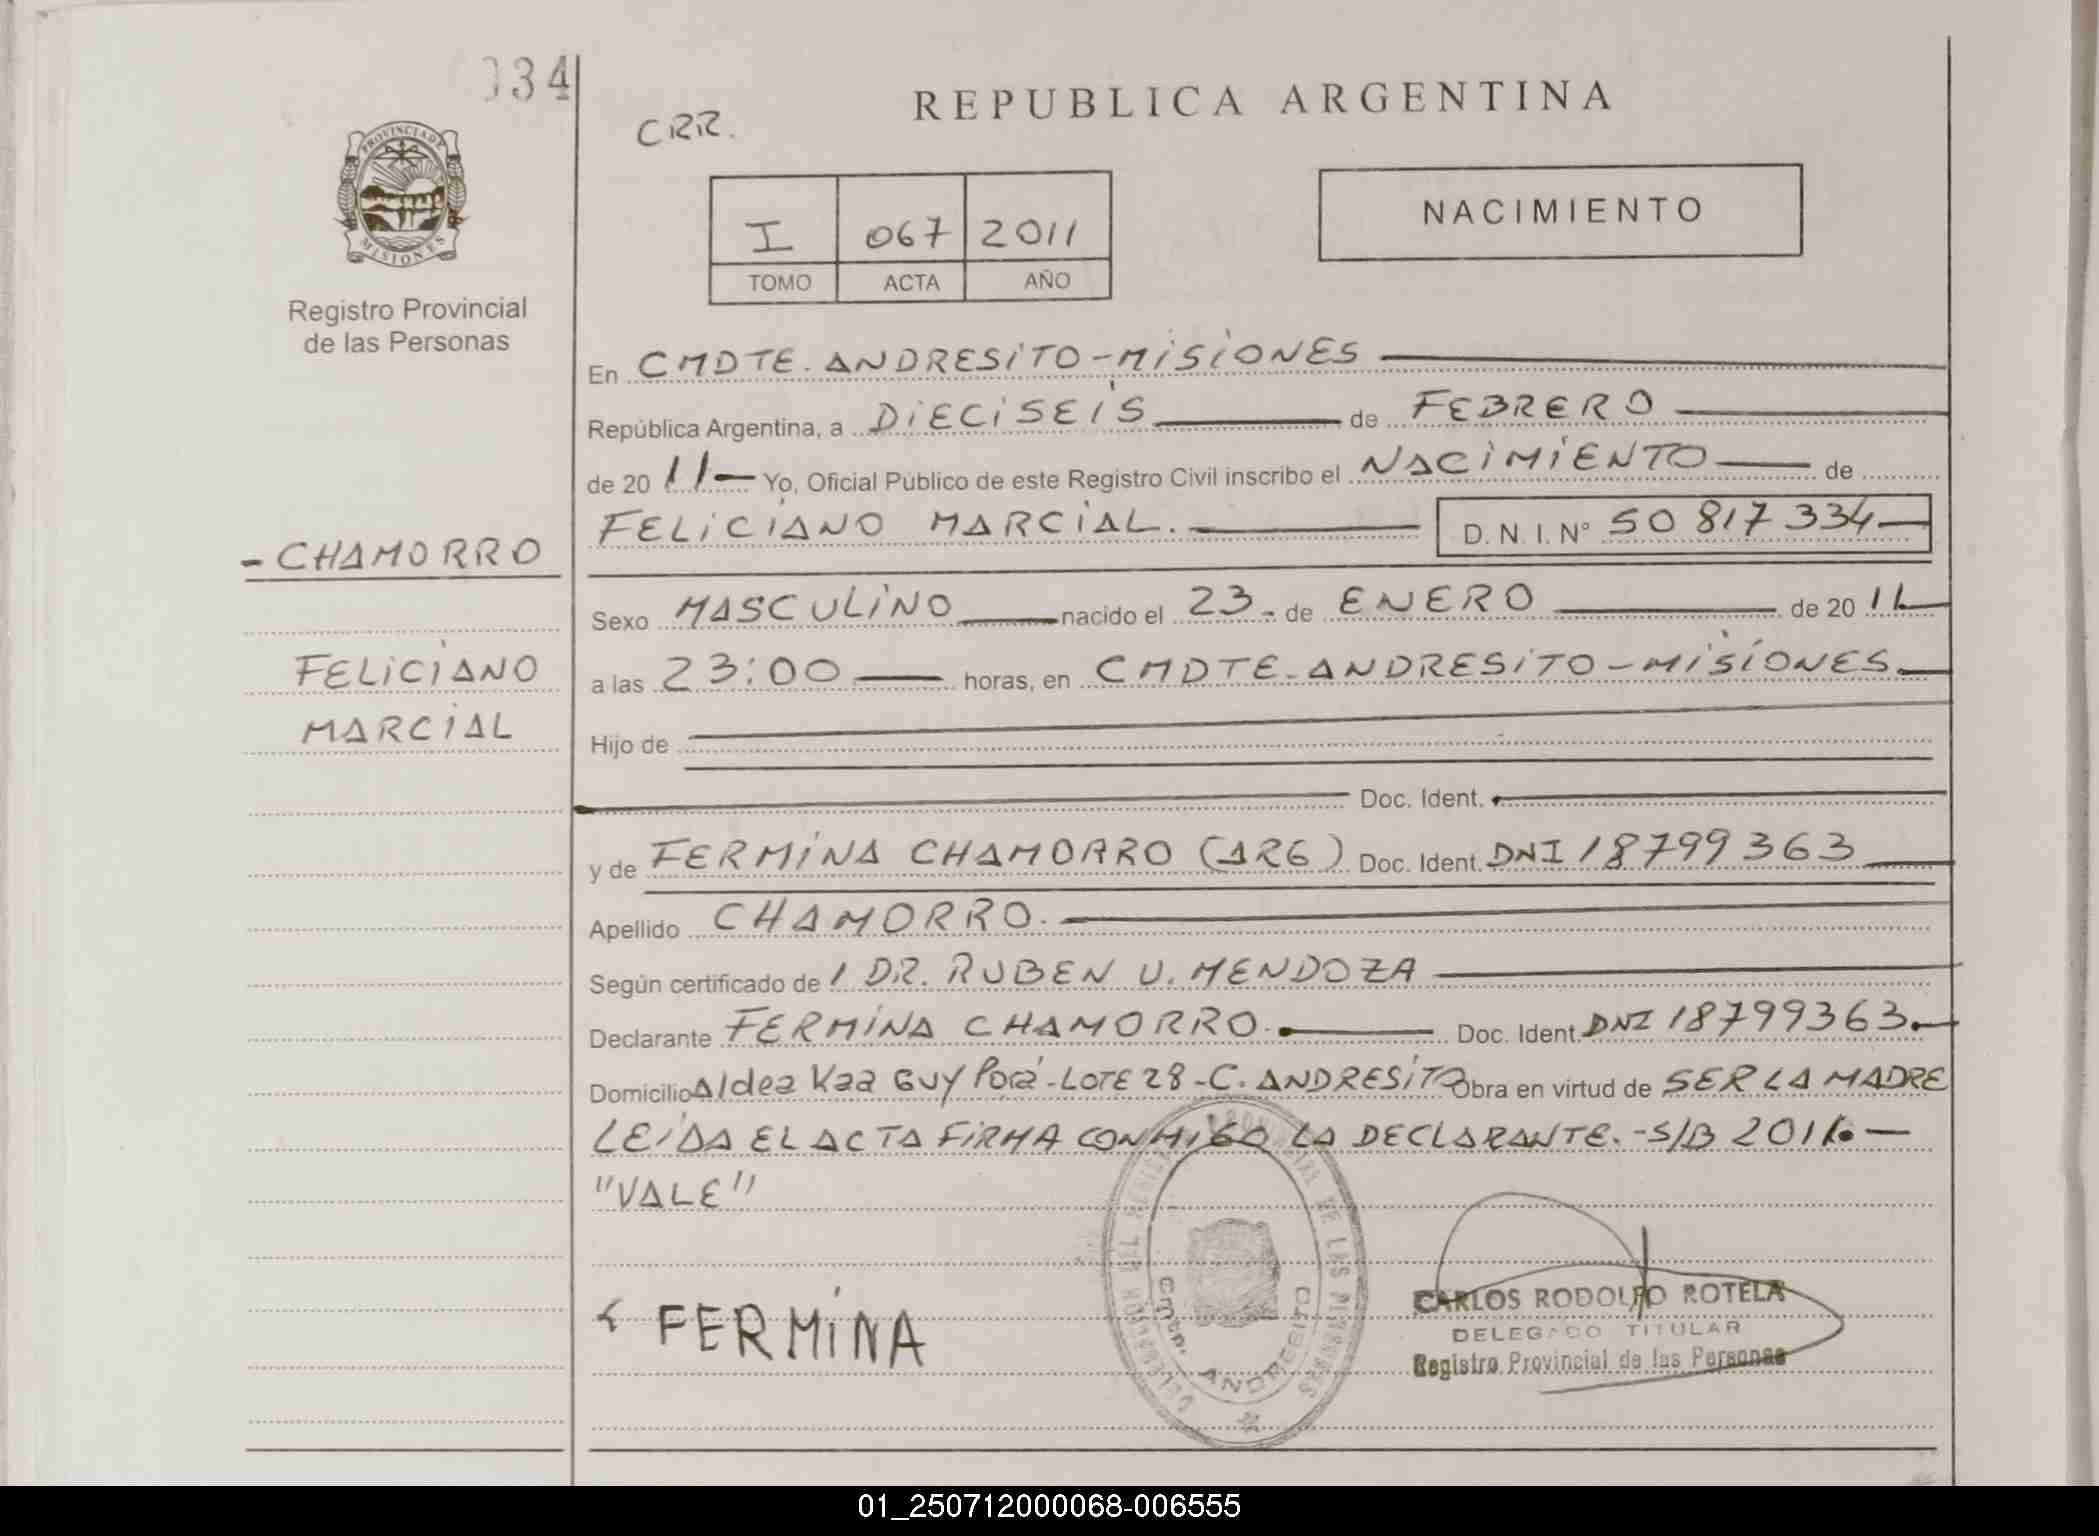 034
CRR.
REPUBLICA ARGENTINA
PROVINCIA DE MISIONES
I 067 2011
TOMO ACTA AÑO
NACIMIENTO
Registro Provincial
de las Personas
En CMDTE. ANDRESITO-MISIONES
República Argentina, a DIECISEIS de FEBRERO
de 20 11- Yo, Oficial Público de este Registro Civil inscribo el NACIMIENTO de
FELICIANO MARCIAL. D. N. I. N° 50 817 334
- CHAMORRO
Sexo MASCULINO nacido el 23- de ENERO de 20 11
FELICIANO
a las 23:00 horas, en CMDTE. ANDRESITO-MISIONES
MARCIAL
Hijo de
Doc. Ident.
y de FERMINA CHAMORRO (ARG) Doc. Ident. DNI 18799363
Apellido CHAMORRO.
Según certificado de / DR. RUBEN U. MENDOZA
Declarante FERMINA CHAMORRO. Doc. Ident. DNI 18799363.
Domicilio Aldea Kaa Guy Porá-LOTE 28-C. ANDRESITO Obra en virtud de SER LA MADRE
LEIDA EL ACTA FIRMA CONMIGO LA DECLARANTE.-S/B 2011.-
"VALE"
FERMINA
DELEGACION DEL REGISTRO PROVINCIAL DE LAS PERSONAS
Cmte. ANDRESITO
CARLOS RODOLFO ROTELA
DELEGADO TITULAR
Registro Provincial de las Personas
01_250712000068-006555